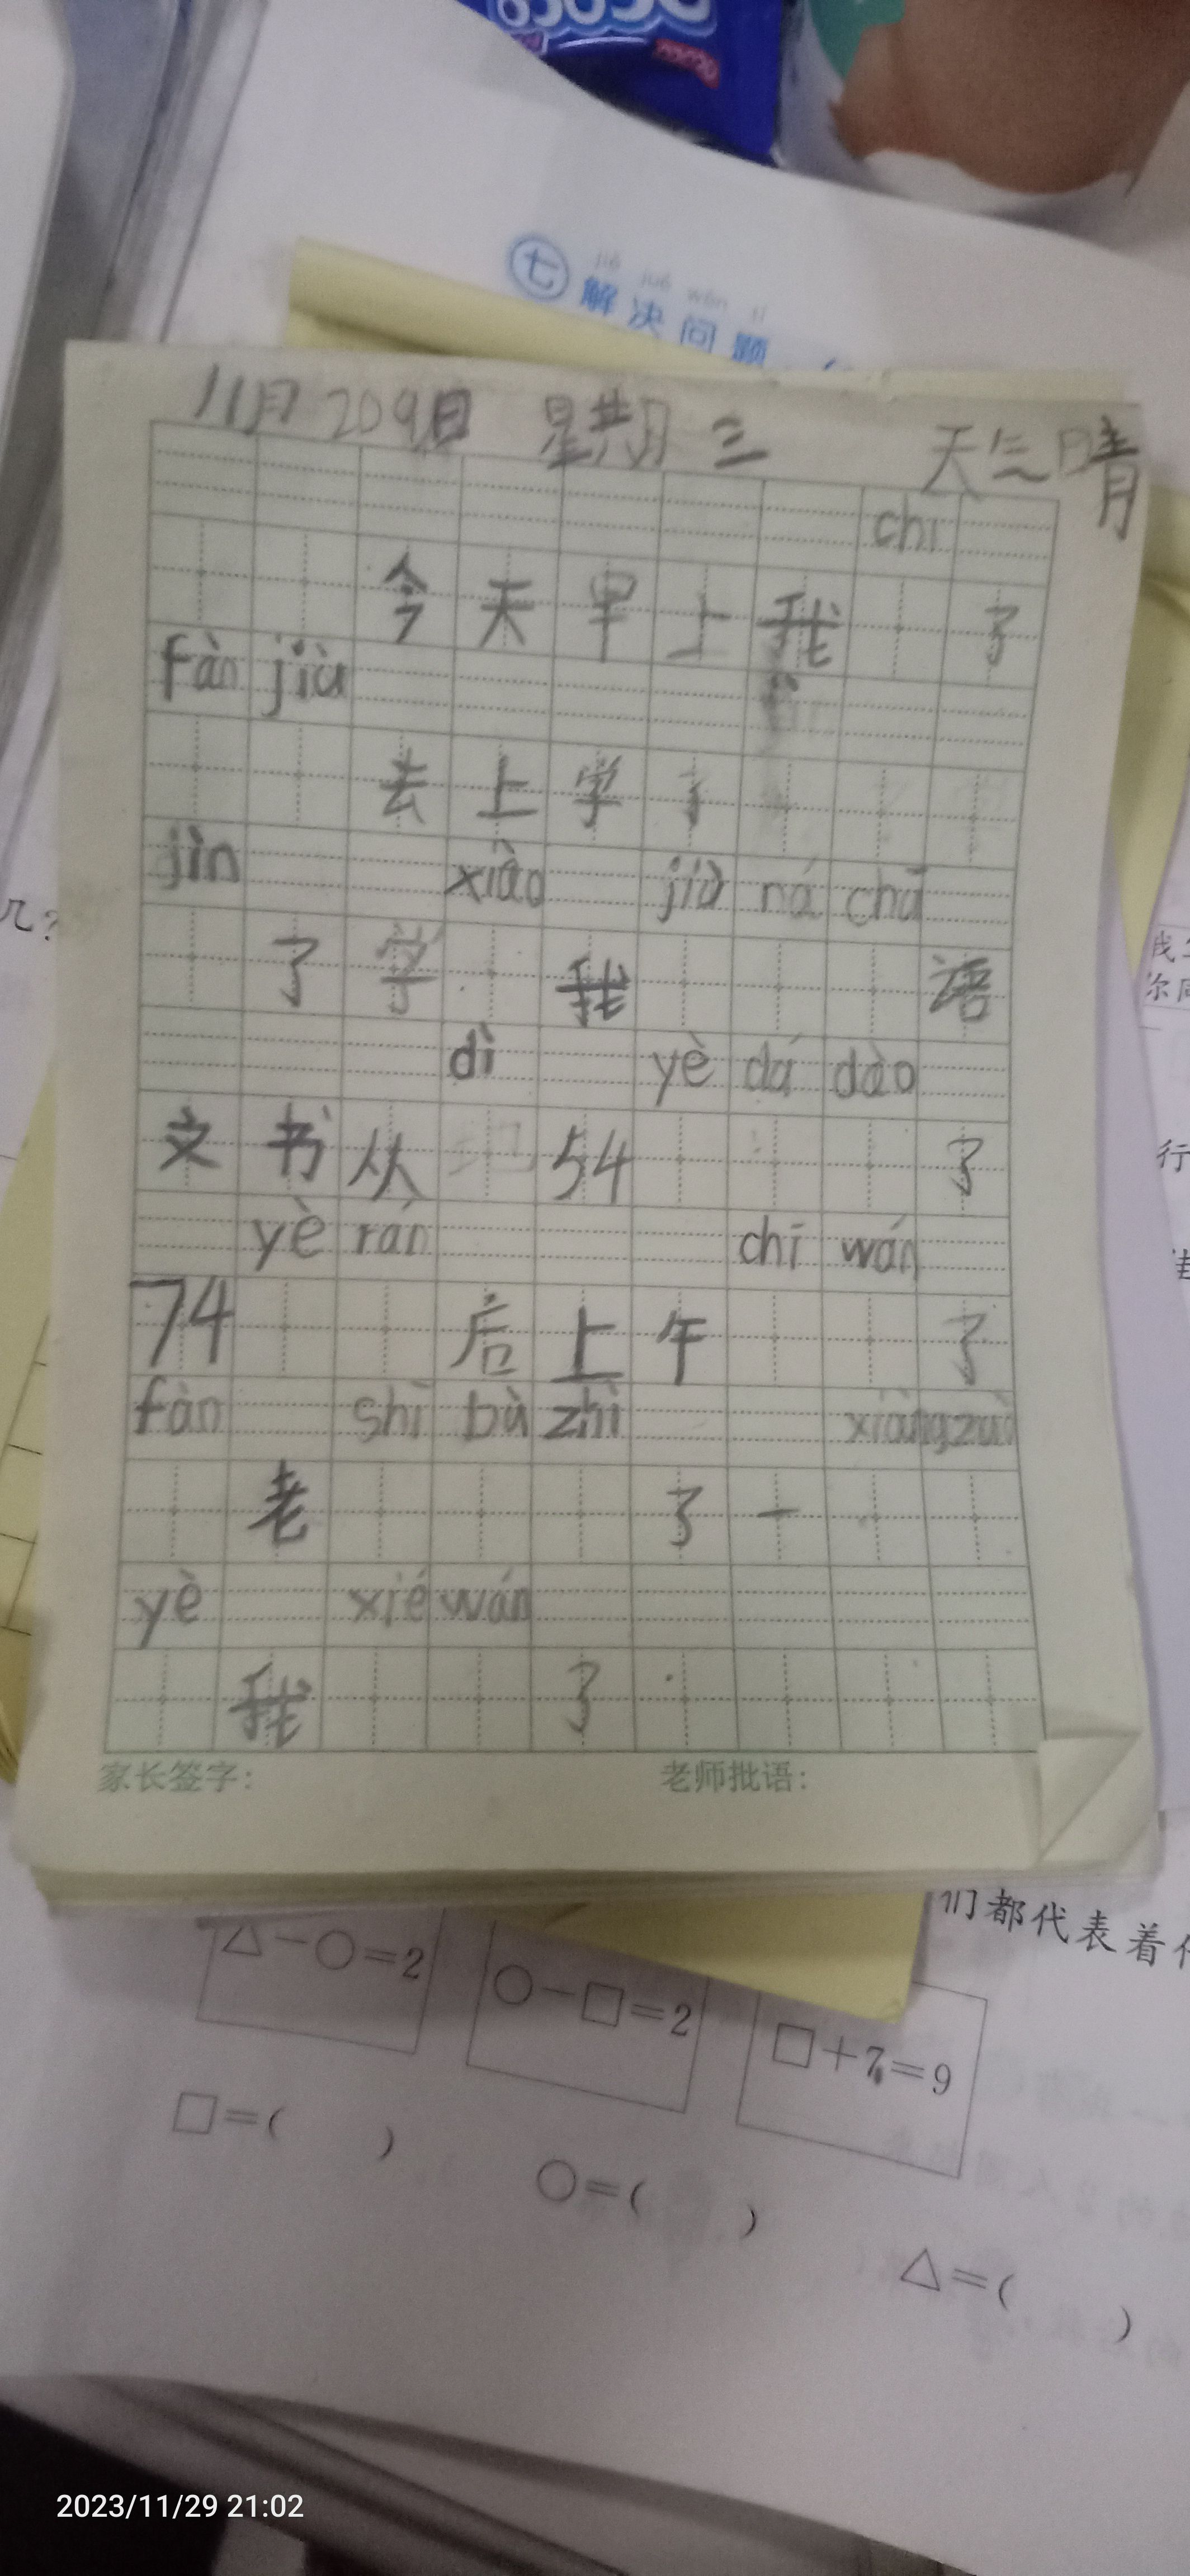 jiě jué wèn tí
七 解决问题
11月 209日 星期三 天气晴
chī
今天早上我 了
fàn jiù
去上学了
jìn xiào jiù ná chū
了学 我 语
dì yè dá dào
文书从 54 了
yè rán chī wán
74 后上午 了
fàn shī bù zhì xiàng zuò
老 了一
yè xié wán
我 了.
家长签字: 老师批语:
几?
行
们都代表着
△-○=2 ○-□=2 □+7=9
□=( ) ○=( ) △=( )
2023/11/29 21:02